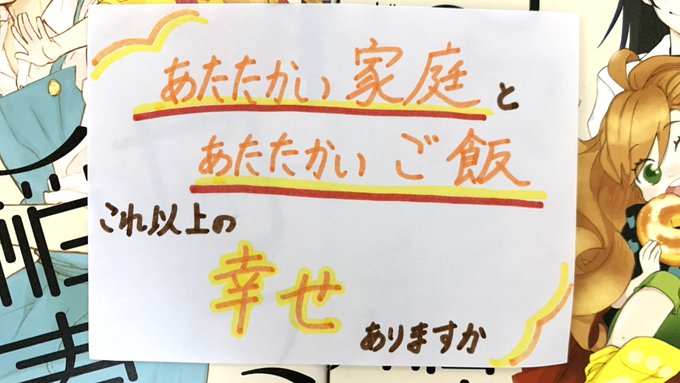 あたたかい家庭と
あたたかいご飯
これ以上の
幸せ
ありますか